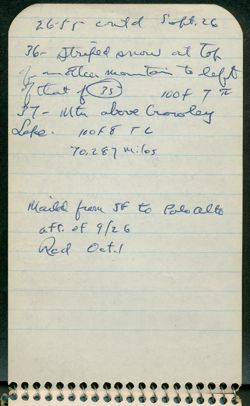 26-55 cont'd Sept. 26
36- striped snow at top
of another mountain to left
of that of 35 100 f 7
37- Mtn above Crowley
Lake. 100 F 8 T L
70,287 miles
Mailed from SF to Palo Alto
aft. of 9/26
Rcd Oct. 1